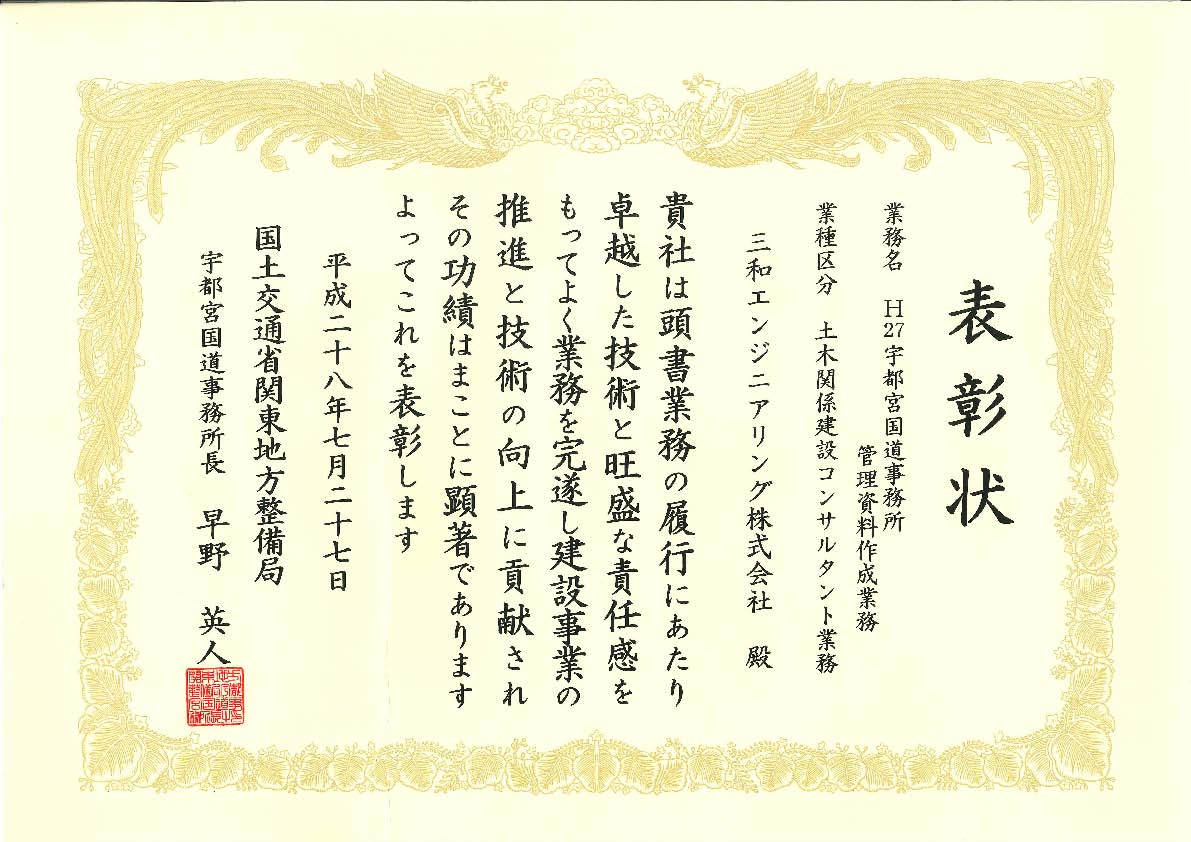 表彰状
業務名 H27宇都宮国道事務所
管理資料作成業務
業種区分 土木関係建設コンサルタント業務
三和エンジニアリング株式会社 殿
貴社は頭書業務の履行にあたり
卓越した技術と旺盛な責任感を
もってよく業務を完遂し建設事業の
推進と技術の向上に貢献され
その功績はまことに顕著であります
よってこれを表彰します
平成二十八年七月二十七日
国土交通省関東地方整備局
宇都宮国道事務所長 早野 英人